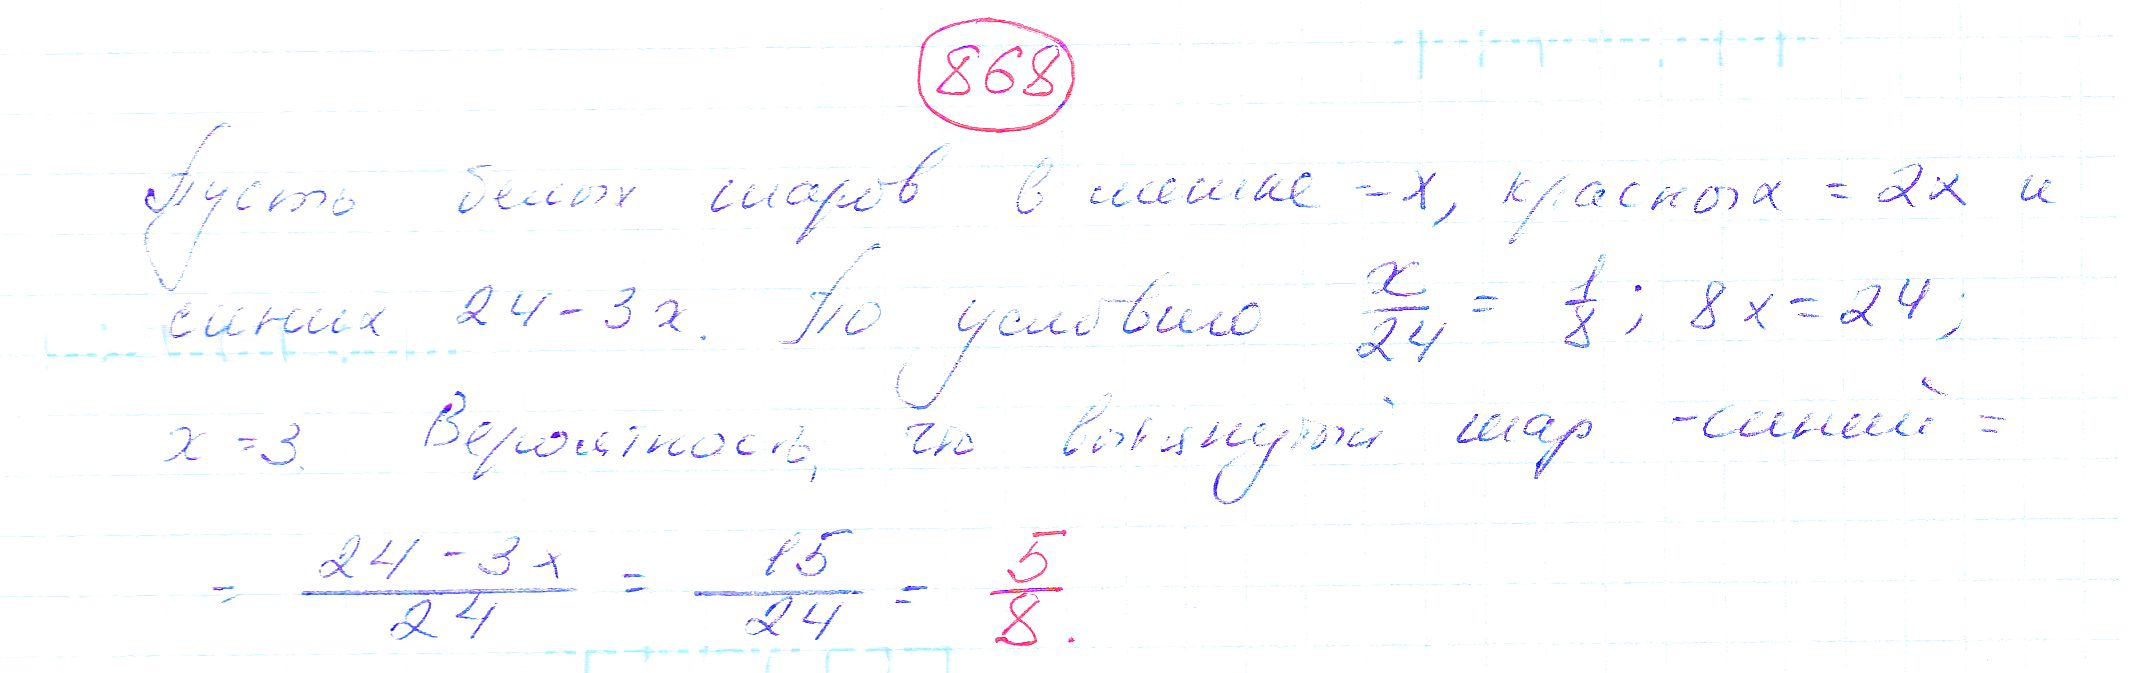 868
Пусть белых шаров в мешке = x, красных = 2x и
синих 24 - 3x. По условию x/24 = 1/8; 8x = 24;
x = 3. Вероятность, что вытянутый шар - синий =
= (24 - 3x)/24 = 15/24 = 5/8.